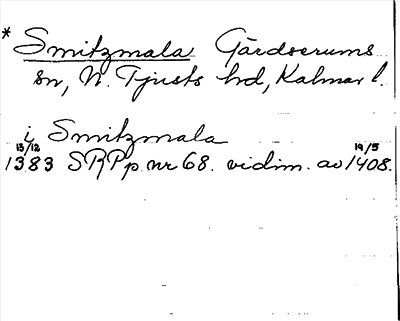 * Smitzmala Gärdserums
sn, N. Tjusts hd, Kalmar l.
i Smitzmala
13/12 19/5
1383 SRPp nr 68. vidim. av 1408.